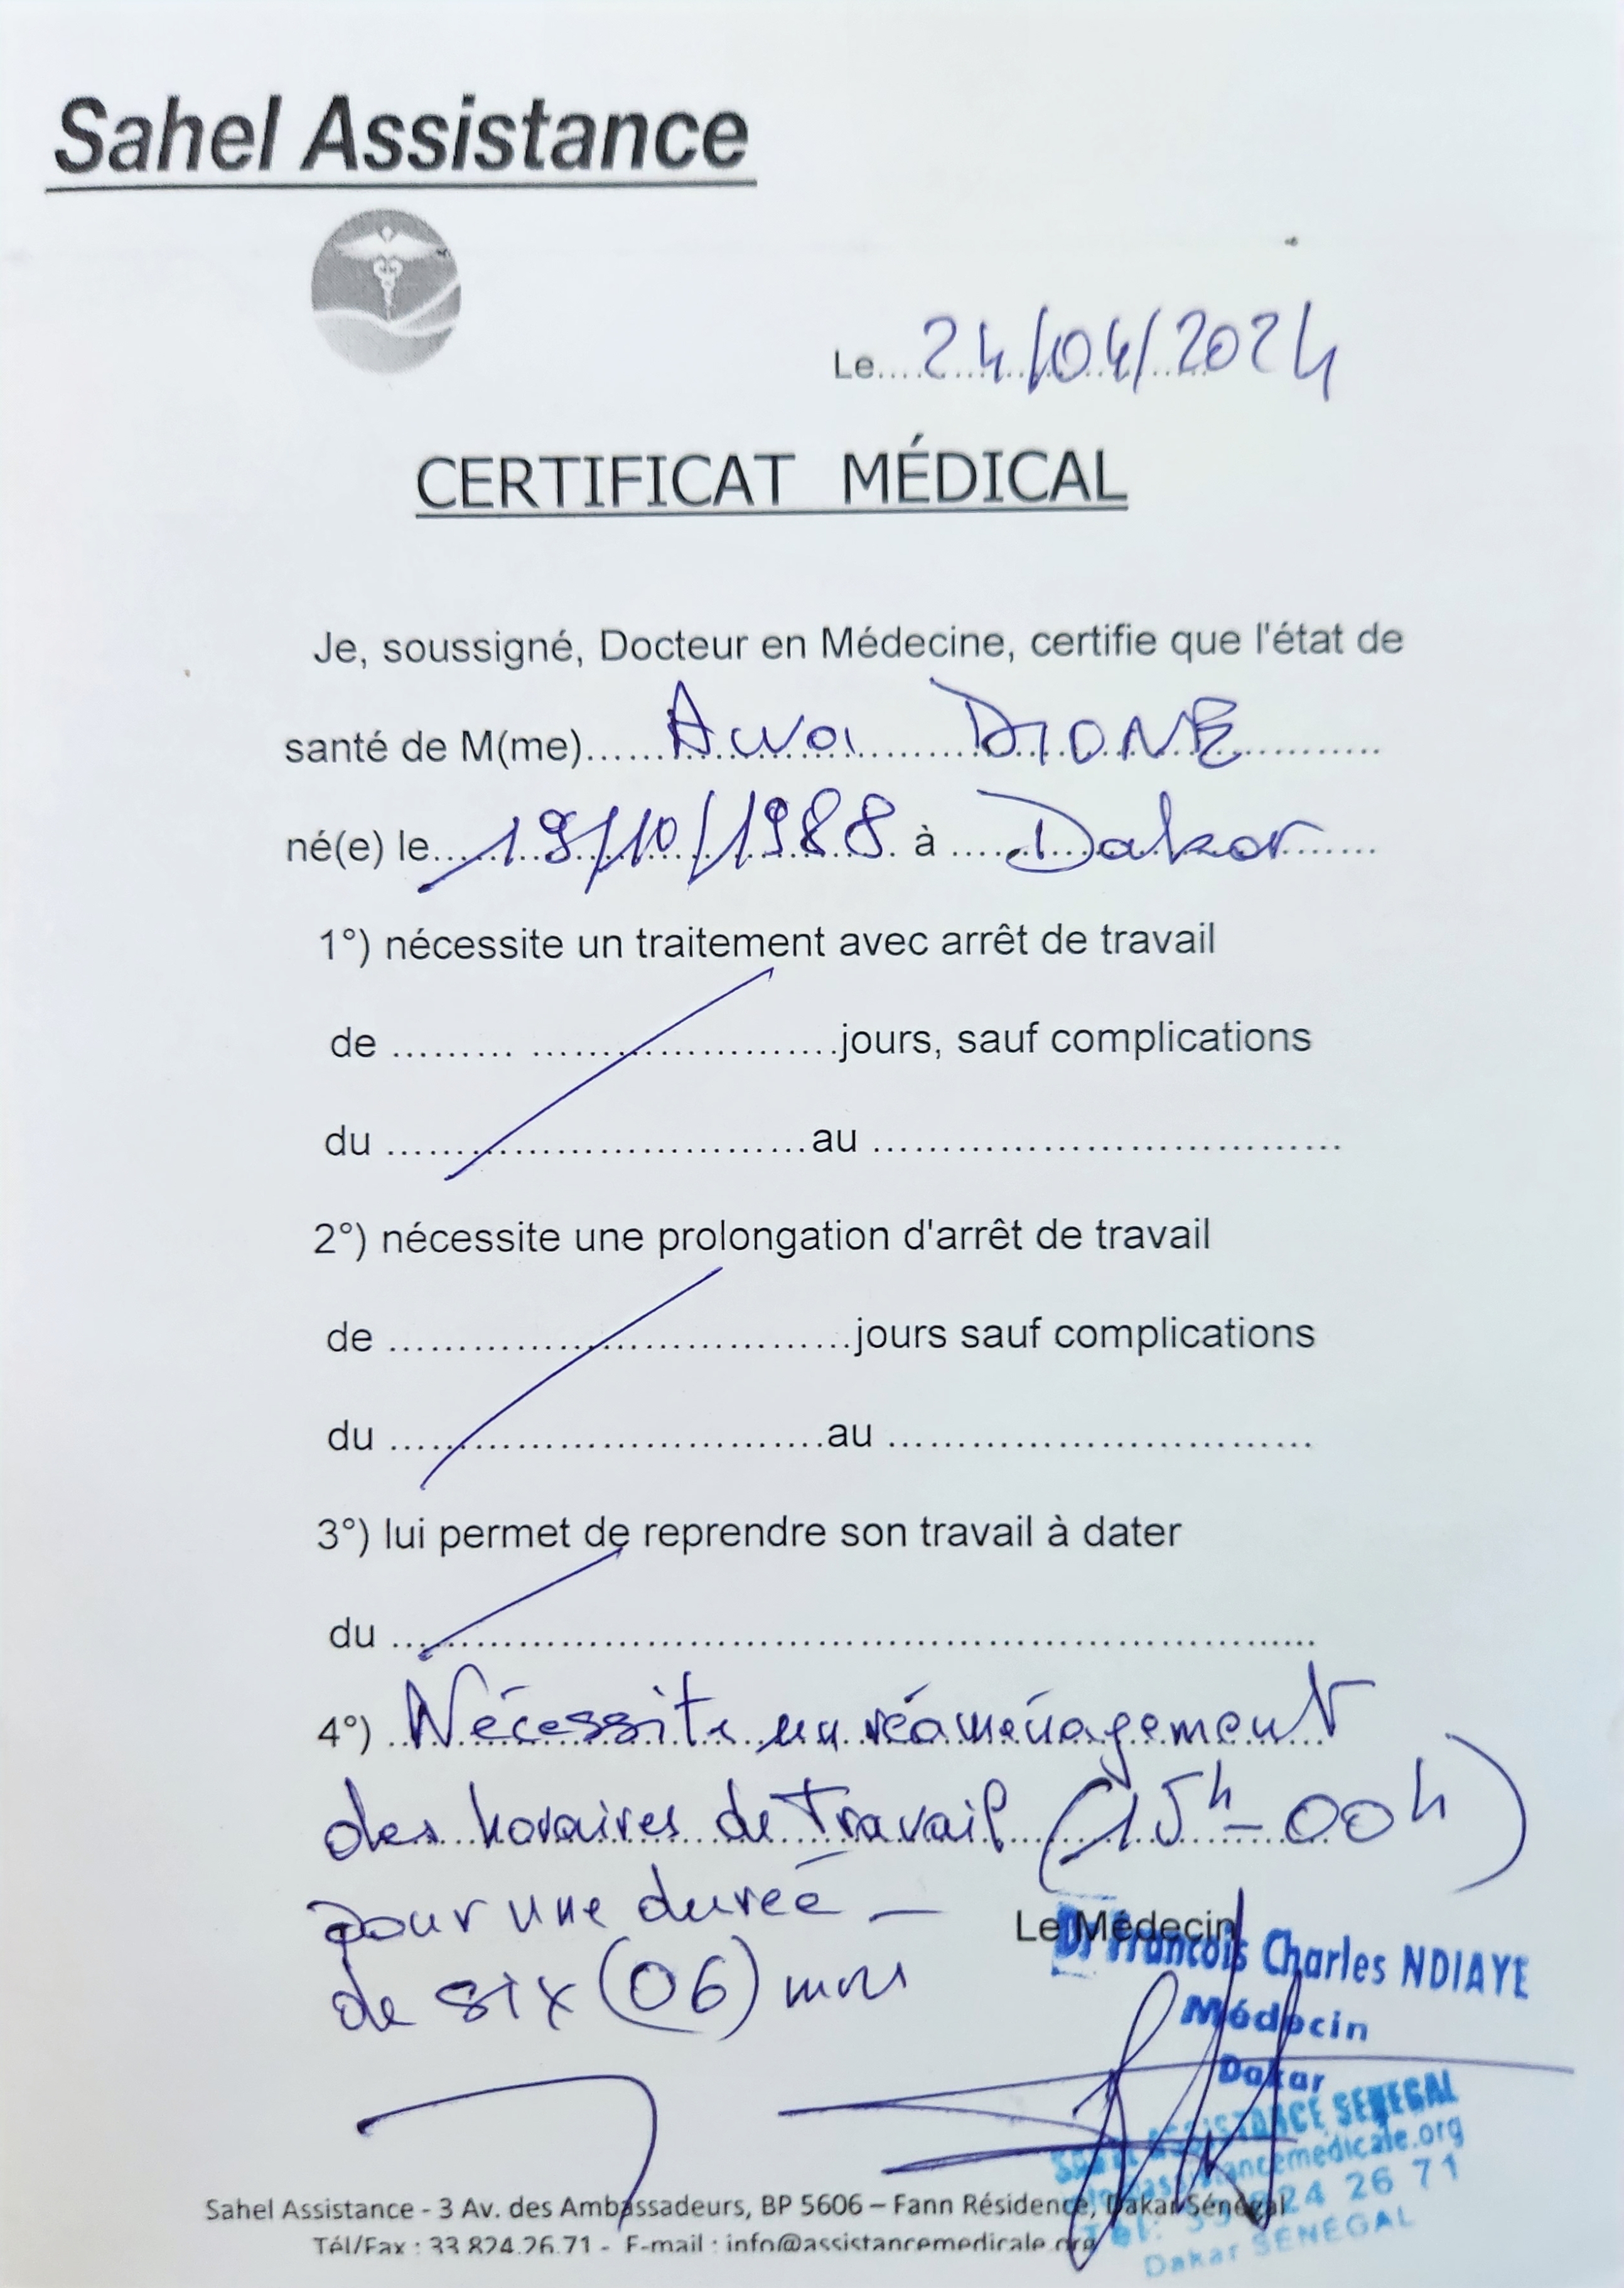 Sahel Assistance
Le....24/04/2024
CERTIFICAT MÉDICAL
Je, soussigné, Docteur en Médecine, certifie que l'état de
santé de M(me)......Awa DIONE
né(e) le....19/10/1988 à ....Dakar
1°) nécessite un traitement avec arrêt de travail
de ......... ..........................jours, sauf complications
du ....................................au ........................................
2°) nécessite une prolongation d'arrêt de travail
de .......................................jours sauf complications
du .....................................au ....................................
3°) lui permet de reprendre son travail à dater
du ...............................................................................
4°) Nécessite un réaménagement
des horaires de Travail (15h - 00h)
pour une durée -
de six (06) mois
Le Médecin
Dr Francois Charles NDIAYE
Médecin
Dakar
ASSISTANCE SENEGAL
assistancemedicale.org
Tél: 33 824 26 71
Dakar SENEGAL
Sahel Assistance - 3 Av. des Ambassadeurs, BP 5606 – Fann Résidence, Dakar Sénégal
Tél/Fax : 33 824.26.71 - E-mail : info@assistancemedicale.org